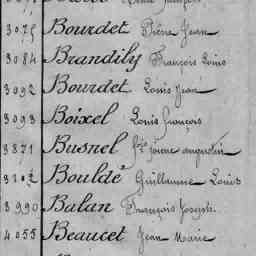 3075 Bourdet Pierre Jean
3084 Brandily François Louis
3092 Bourdet Louis Jean
3093 Boixel Louis françois
3871 Busnel augustin
Bouldé Guillaume Louis
3990 Balan François Joseph
4055 Beaucet Jean Marie